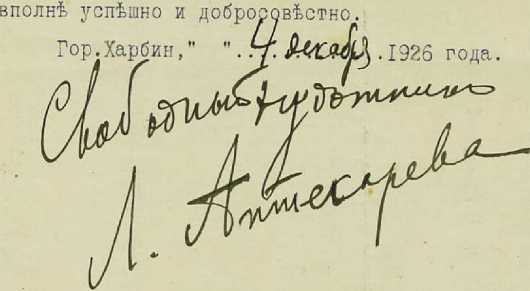 вполнѣ успѣшно и добросовѣстно.
Гор.Харбин," "..4 декабря.1926 года.
Свободный художникъ
Л. Аптекарева